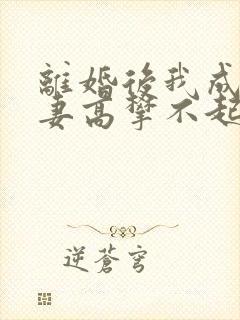 離婚後我成
妻高攀不起
逆蒼穹